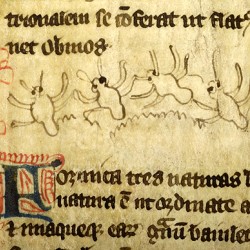 trionalem se cōferat ut flat
net obuios
Formica tres naturas h
natura ē ut ordinate a
& unaqueq; eaꝝ gͣnū baiule